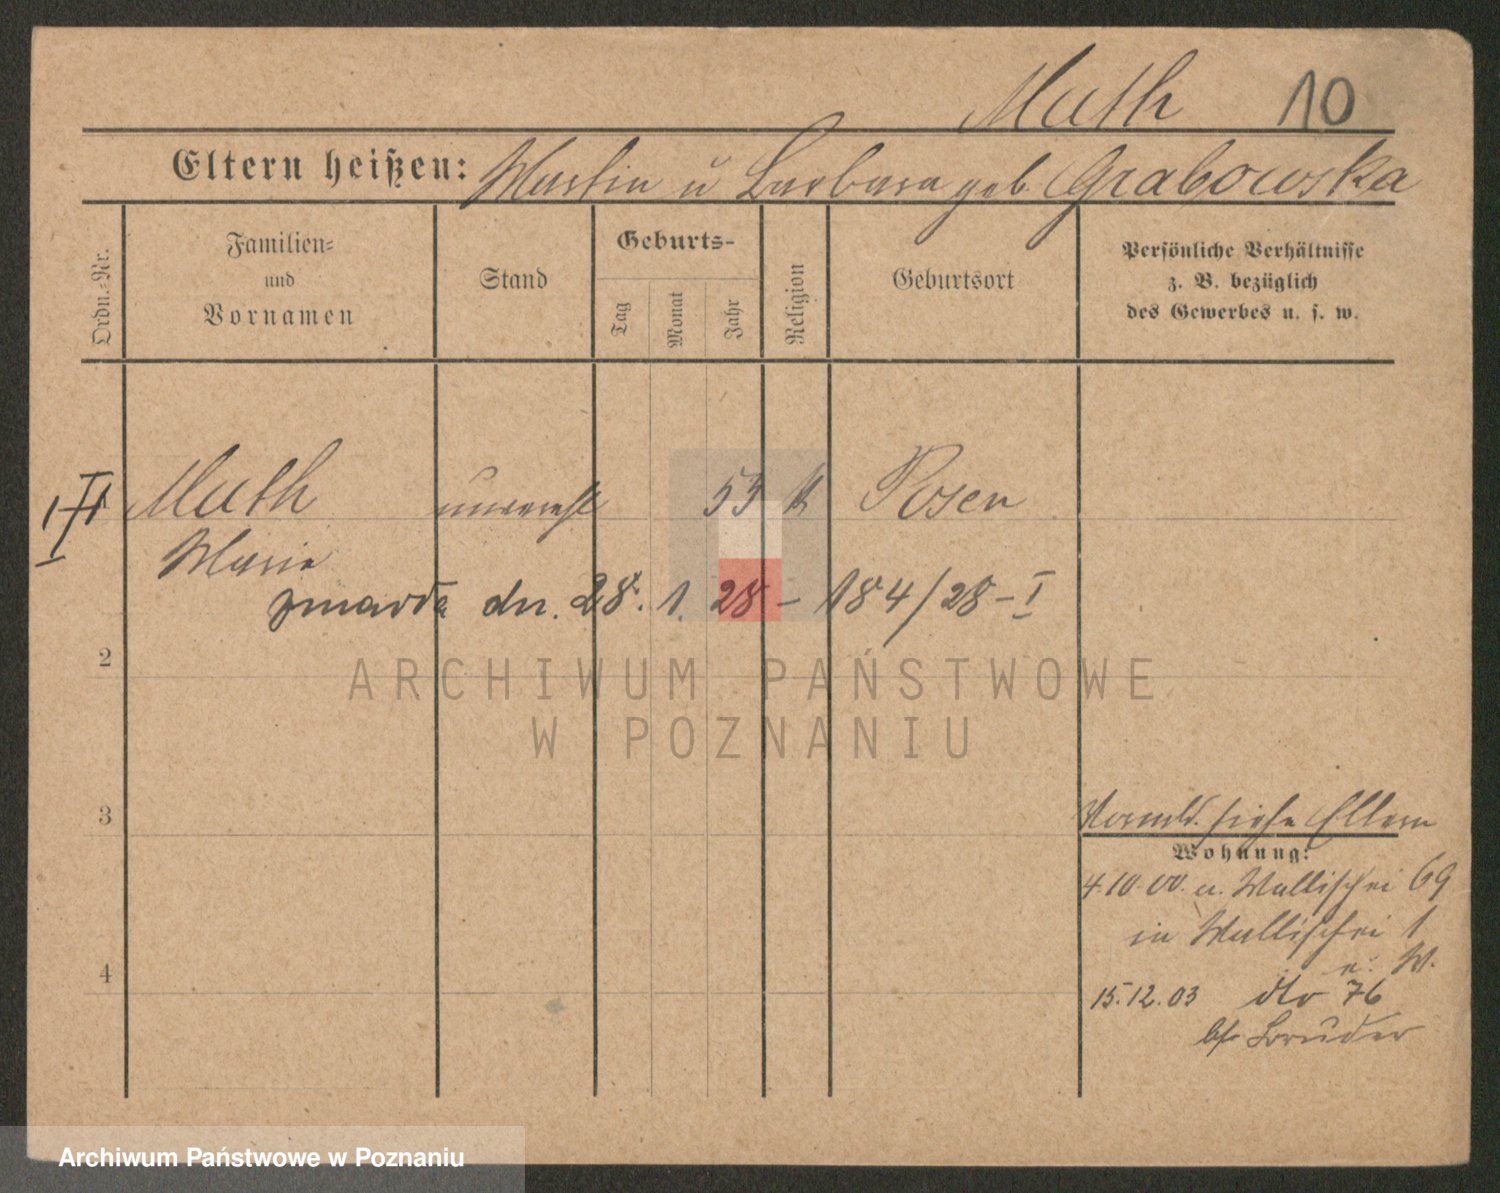 Muth 10
Eltern heißen: Martin u Barbara geb. Grabowska
Ordn.-Nr.
Familien-
und
Vornamen
Stand
Geburts-
Tag
Monat
Jahr
Religion
Geburtsort
Persönliche Verhältnisse
z. B. bezüglich
des Gewerbes u. s. w.
Muth unverehl 53 k Posen
Marie
zmarda dn. 28. 1. 28 - 184/28-I
2
3
4
siehe Eltern
Wohnung:
4.10.00. u. Wallischei 69
in Wallischei 1
u. W.
15.12.03 dto 76
bh Bruder
ARCHIWUM PAŃSTWOWE
W POZNANIU
Archiwum Państwowe w Poznaniu